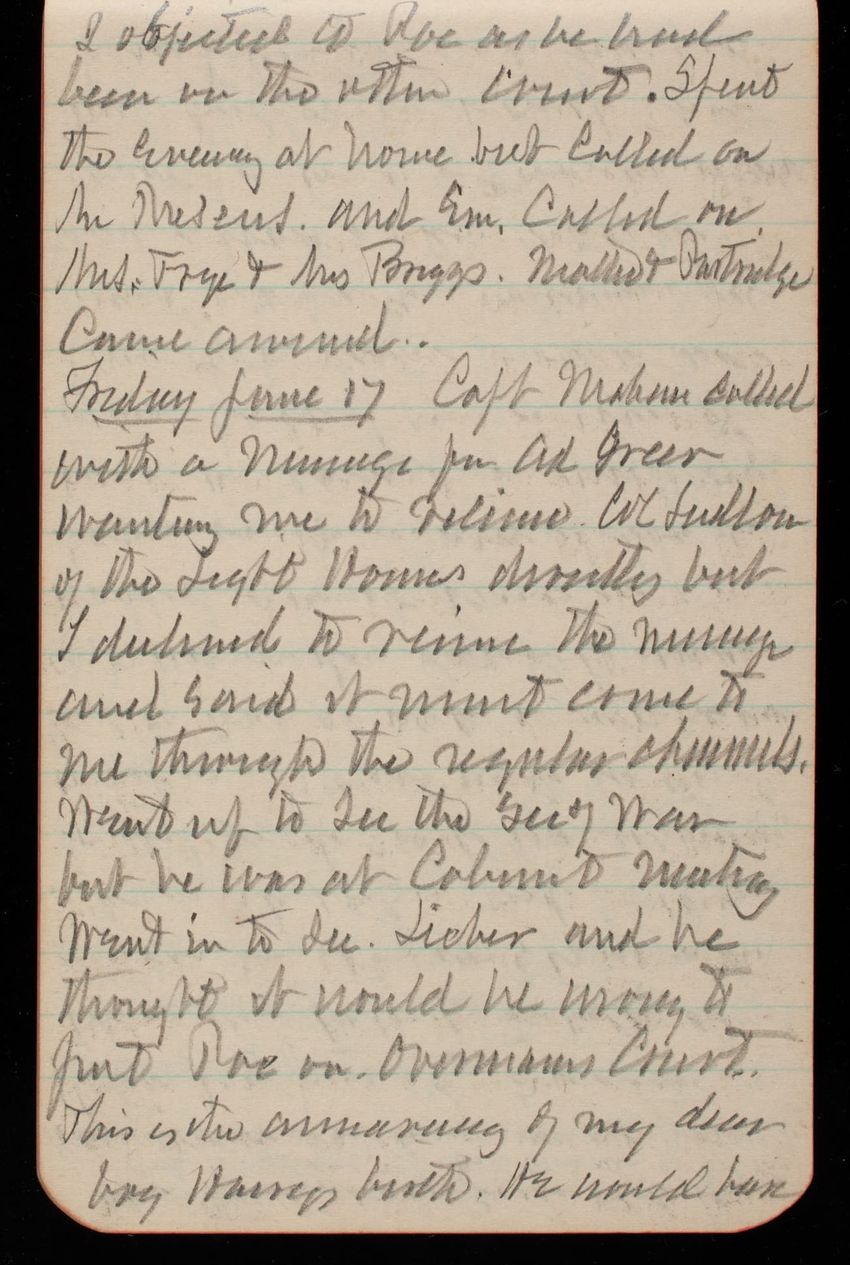 I objected to Roe as he had
been on the other Court. Spent
the Evening at home but Called on
the Presens. and Em. Called on
Mrs. Frye & Mrs Briggs. & Partridge
Came around..
Friday June 17 Capt Mahan called
with a Message fm Ad Greer
wanting me to relieve Col Ludlow
of the Light Houses directly but
I declined to receive the message
and said it must come to
me through the regular channels.
Went up to See the Secy War
but he was at Cabinet Meeting
Went in to See. Lieber and he
thought it would be wrong to
put Roe on. Overmans Court.
This is the of my dear
boy Harrys birth. He would have